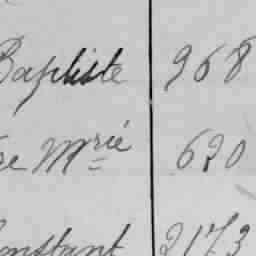 Baptiste 968
se Mrie 620
Constant 2173